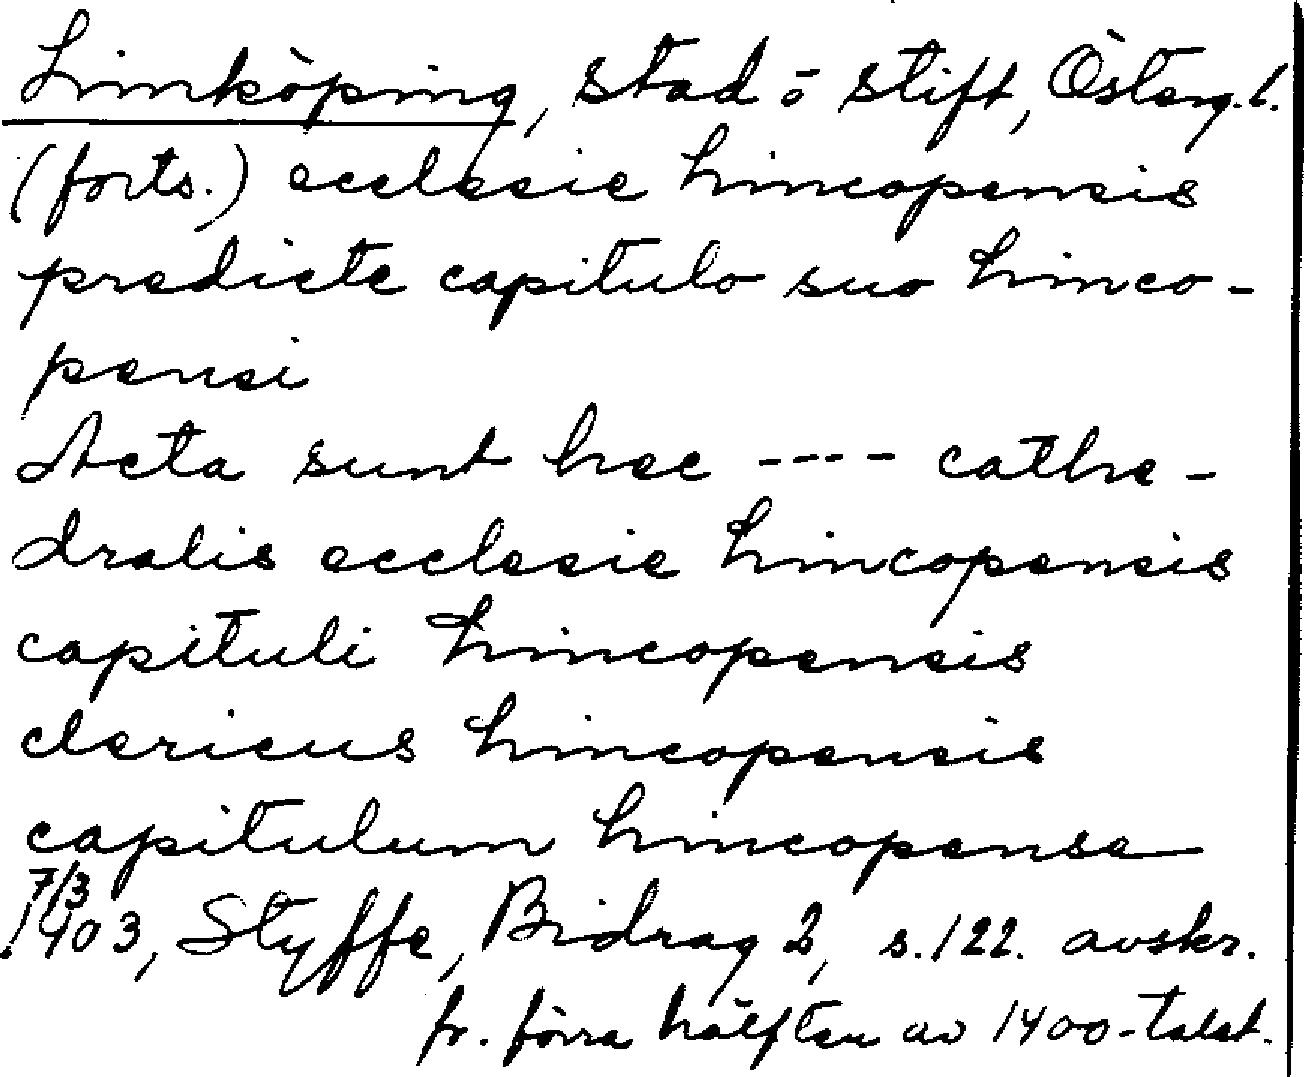 Linköping, stad o stift, Österg. l.
(forts.) ecclesie Lincopensis
predicte capitulo suo Linco-
pensi
Acta sunt hec ---- cathe-
dralis ecclesie Lincopensis
capituli Lincopensis
clericus Lincopensis
capitulum Lincopense
7/3
1403, Styffe, Bidrag 2, s. 122. avskr.
fr. förra hälften av 1400-talet.